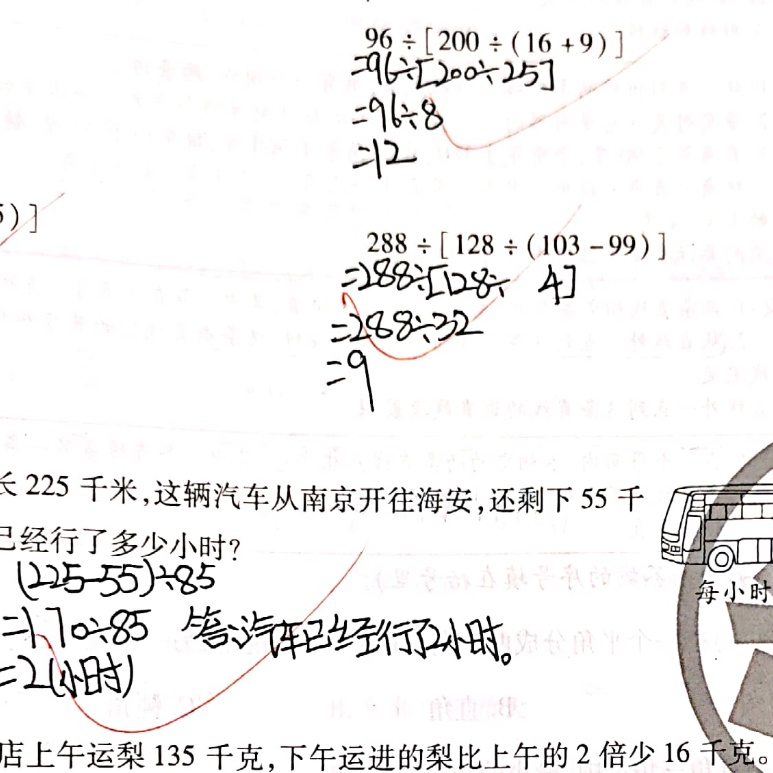 96÷[200÷(16+9)]
=96÷[200÷25]
=96÷8
=12
5)]
288÷[128÷(103-99)]
=288÷[128÷ 4]
=288÷32
=9
长225千米,这辆汽车从南京开往海安,还剩下55千
已经行了多少小时?
(225-55)÷85
=170÷85 答:汽车已经行了2小时。
=2(小时)
每小时
店上午运梨135千克,下午运进的梨比上午的2倍少16千克。